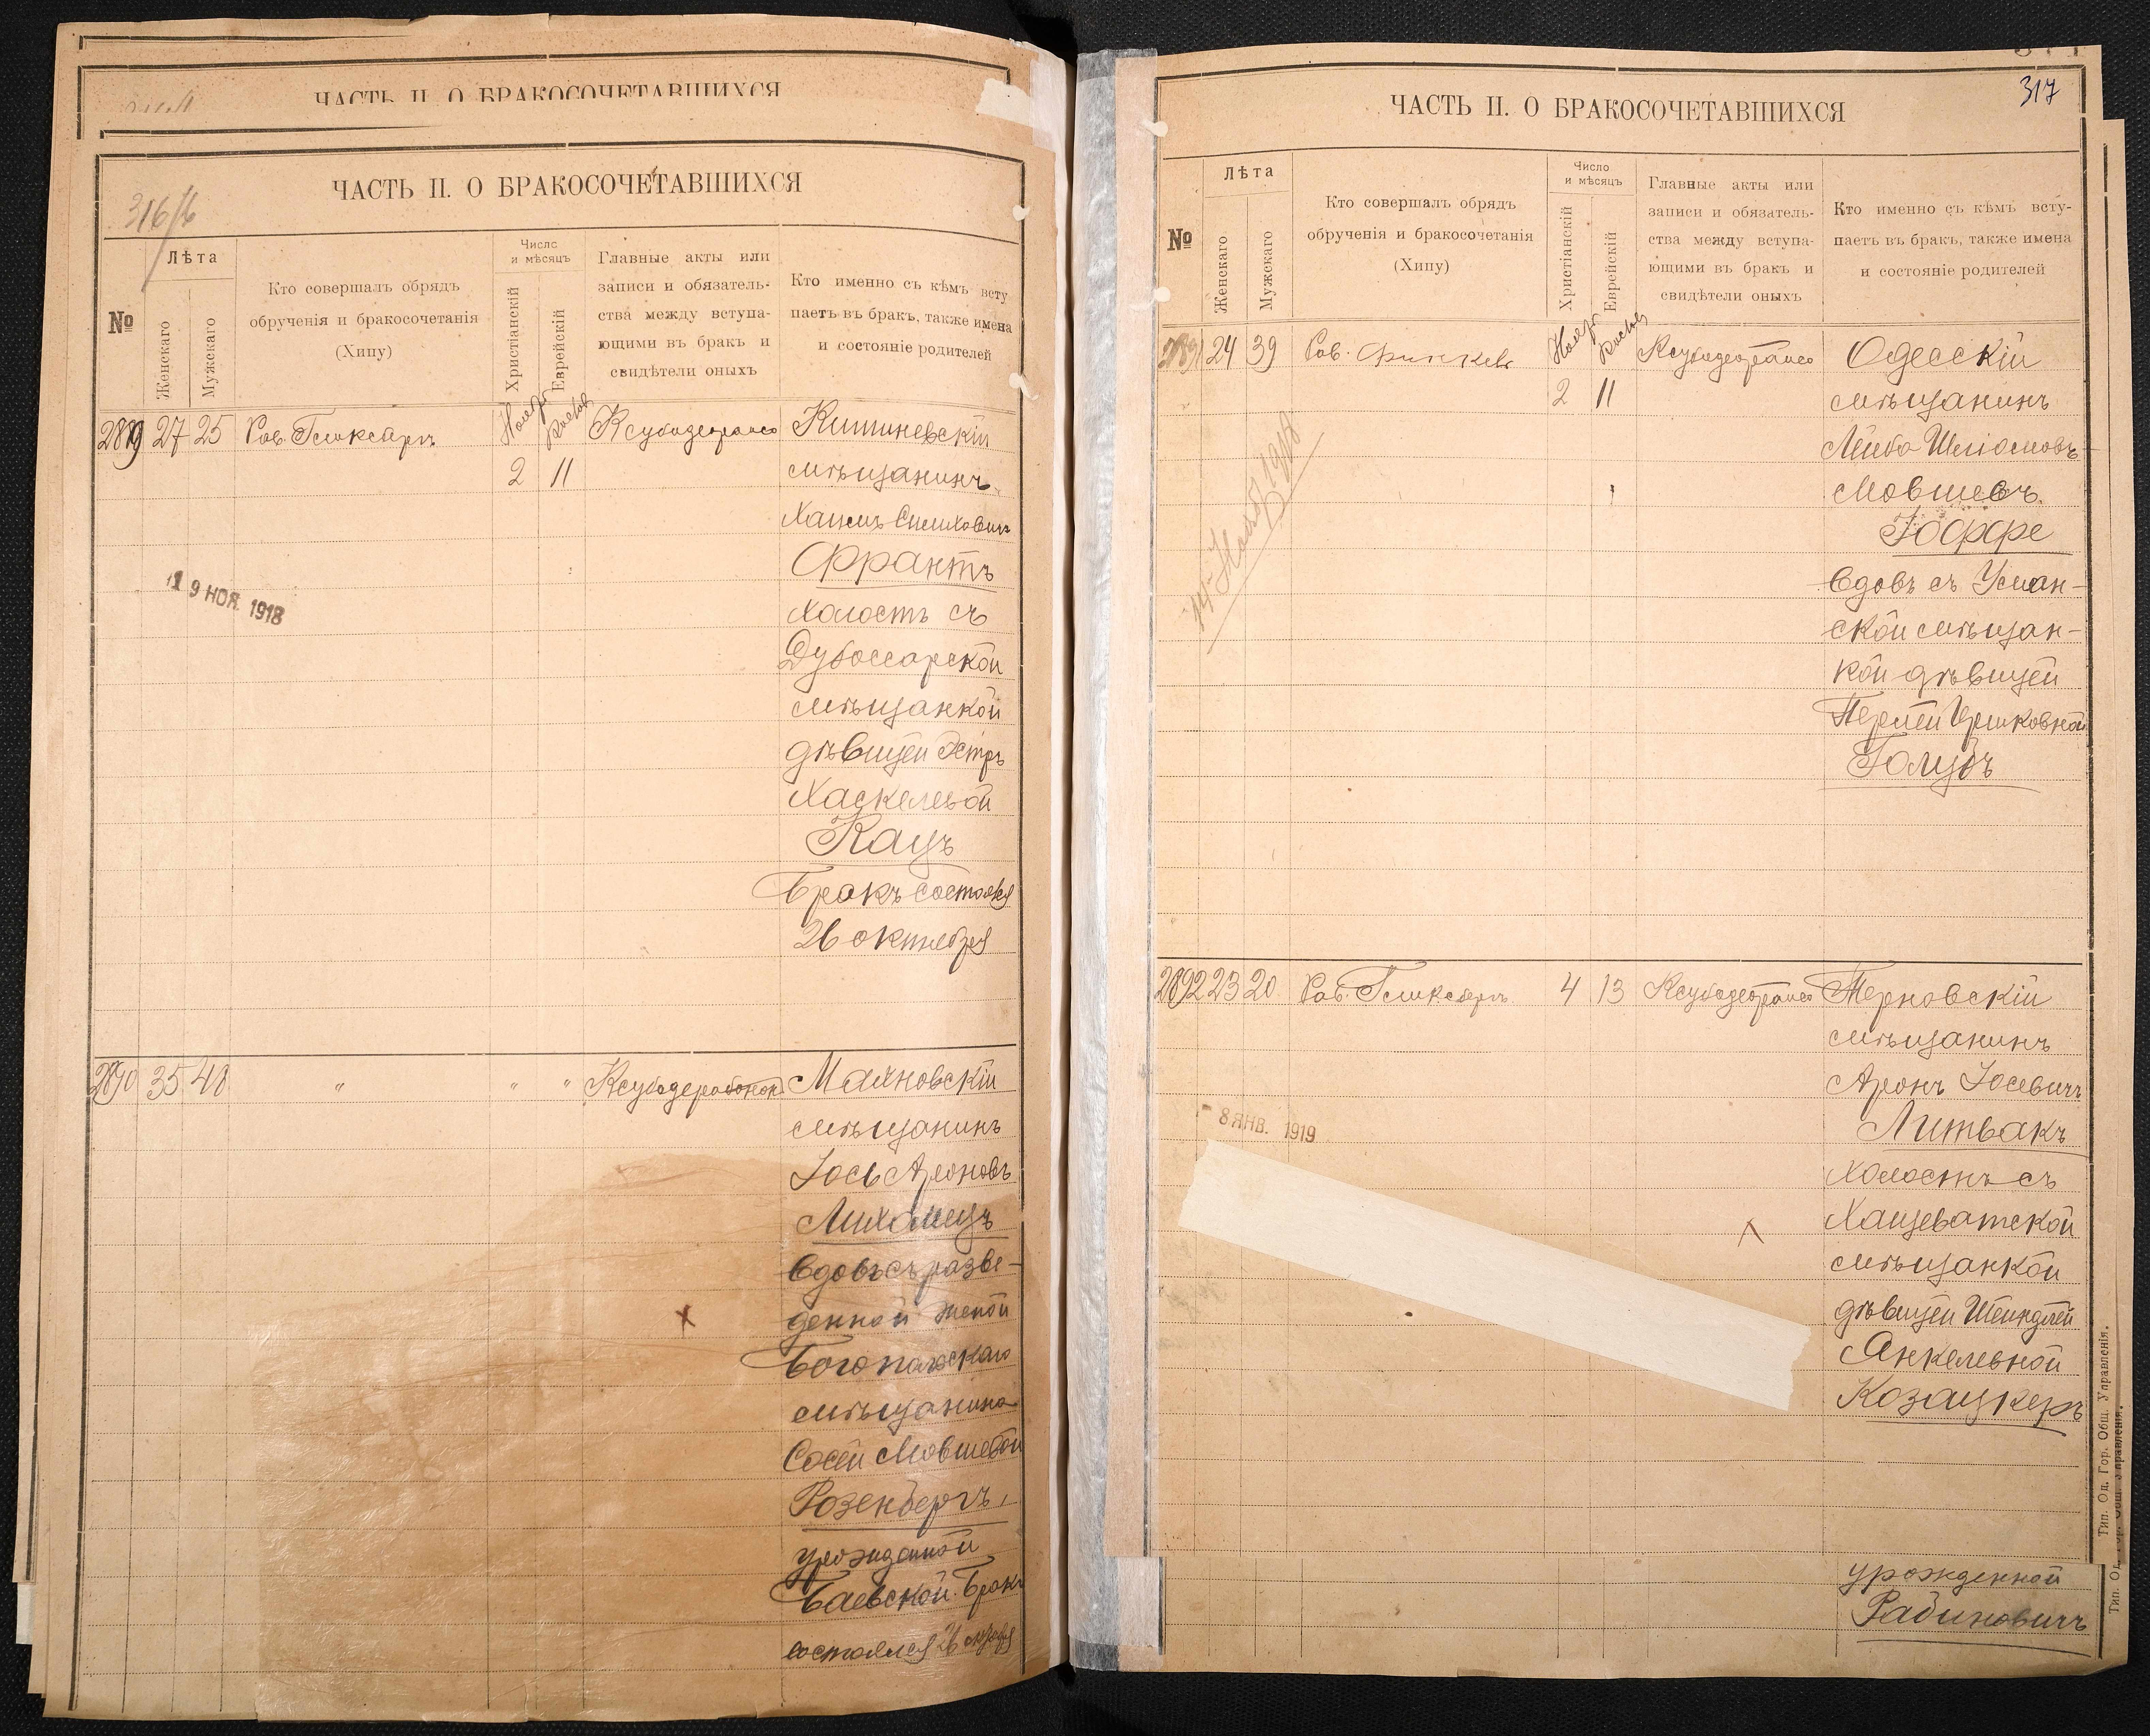 ЧАСТЬ II. О БРАКОСОЧЕТАВШИХСЯ
ЧАСТЬ II. О БРАКОСОЧЕТАВШИХСЯ
316/б
№
Лѣта
Женскаго
Мужскаго
Кто совершалъ обрядъ
обрученія и бракосочетанія
(Хипу)
Число
и мѣсяцъ
Христіанскій
Еврейскій
Главные акты или
записи и обязатель-
ства между вступа-
ющими въ бракъ и
свидѣтели оныхъ
Кто именно съ кѣмъ всту
паетъ въ бракъ, также имена
и состояніе родителей
2889 27 25 Рав. Гликсбергъ
2 11
Кишиневскій
мѣщанинъ
Хаимъ
Франтъ
холостъ съ
Дубоссарской
мѣщанкой
дѣвицей Эстеръ
Хаскелевой
Кацъ
Бракъ состоялся
26 октября
19 НОЯ. 1918
2890 35 48 " " "
Маяновскій
мѣщанинъ
Іось Ароновъ
Лихамецъ
вдовъ съ разве-
денной женой
Богопольскаго
мѣщанина
Сосей Мовшевой
Розенбергъ,
урожденной
Баевской. Бракъ
состоялся 26 октября
317
ЧАСТЬ II. О БРАКОСОЧЕТАВШИХСЯ
№
Лѣта
Женскаго
Мужскаго
Кто совершалъ обрядъ
обрученія и бракосочетанія
(Хипу)
Число
и мѣсяцъ
Христіанскій
Еврейскій
Главные акты или
записи и обязатель-
ства между вступа-
ющими въ бракъ и
свидѣтели оныхъ
Кто именно съ кѣмъ всту-
паетъ въ бракъ, также имена
и состояніе родителей
2891 24 39 Рав.
2 11
Одесскій
мѣщанинъ
Лейба Шліомовъ-
Мовшевъ
Іоффе
вдовъ съ Уман-
ской мѣщан-
кой дѣвицей
Перлей Ицковной
Голубъ
1918
2892 23 20 Рав. Гликсбергъ 4 13
Терновскій
мѣщанинъ
Аронъ Іосевичъ
Литвакъ
холостъ съ
Хащеватской
мѣщанкой
дѣвицей Шейндлей
Янкелевной
Козацкеръ
8 ЯНВ. 1919
Тип. Од. Гор. Общ. Управленія.
урожденной
Рабиновичъ